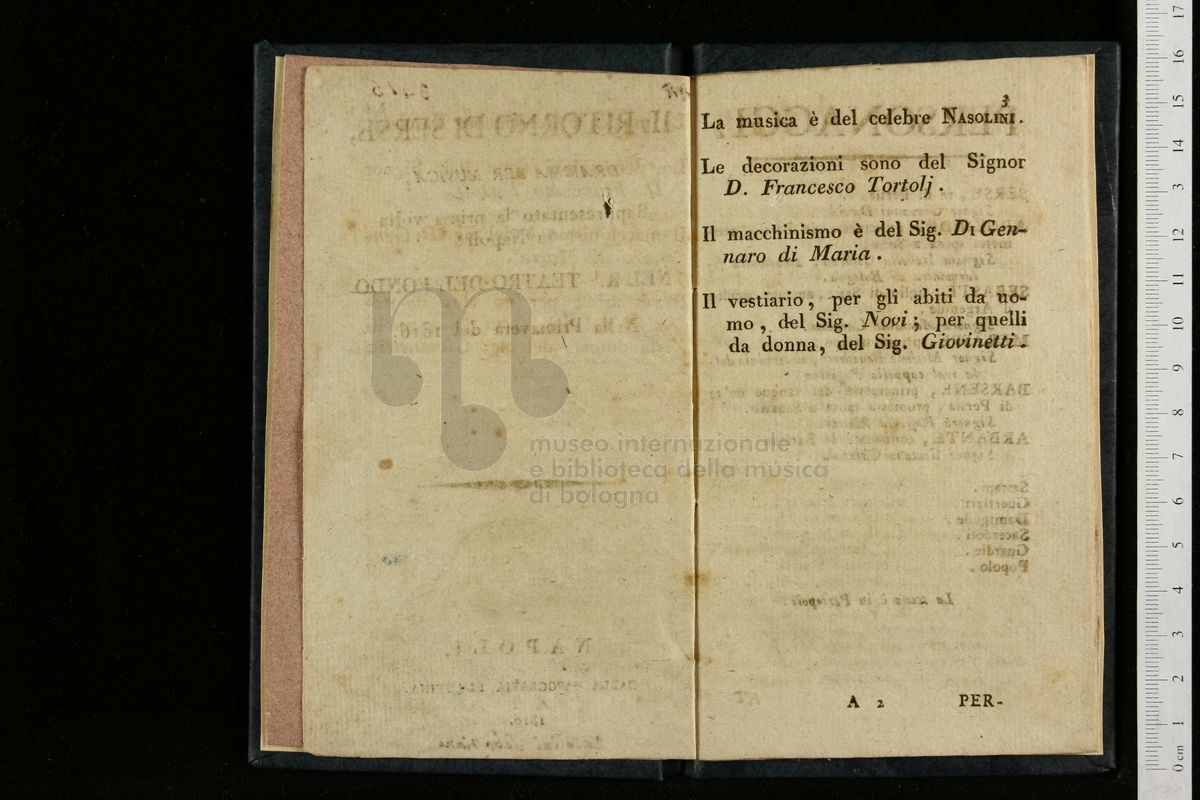 3
La musica è del celebre NASOLINI.
Le decorazioni sono del Signor
D. Francesco Tortolj.
Il macchinismo è del Sig. DI Gen-
naro di Maria.
Il vestiario, per gli abiti da uo-
mo, del Sig. Novi; per quelli
da donna, del Sig. Giovinetti.
A 2 PER-
museo internazionale
e biblioteca della musica
di bologna
0 cm 1 2 3 4 5 6 7 8 9 10 11 12 13 14 15 16 17